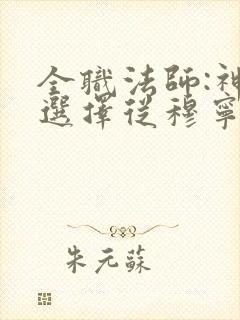 全職法師:神
選擇從穆寧
朱元蘇